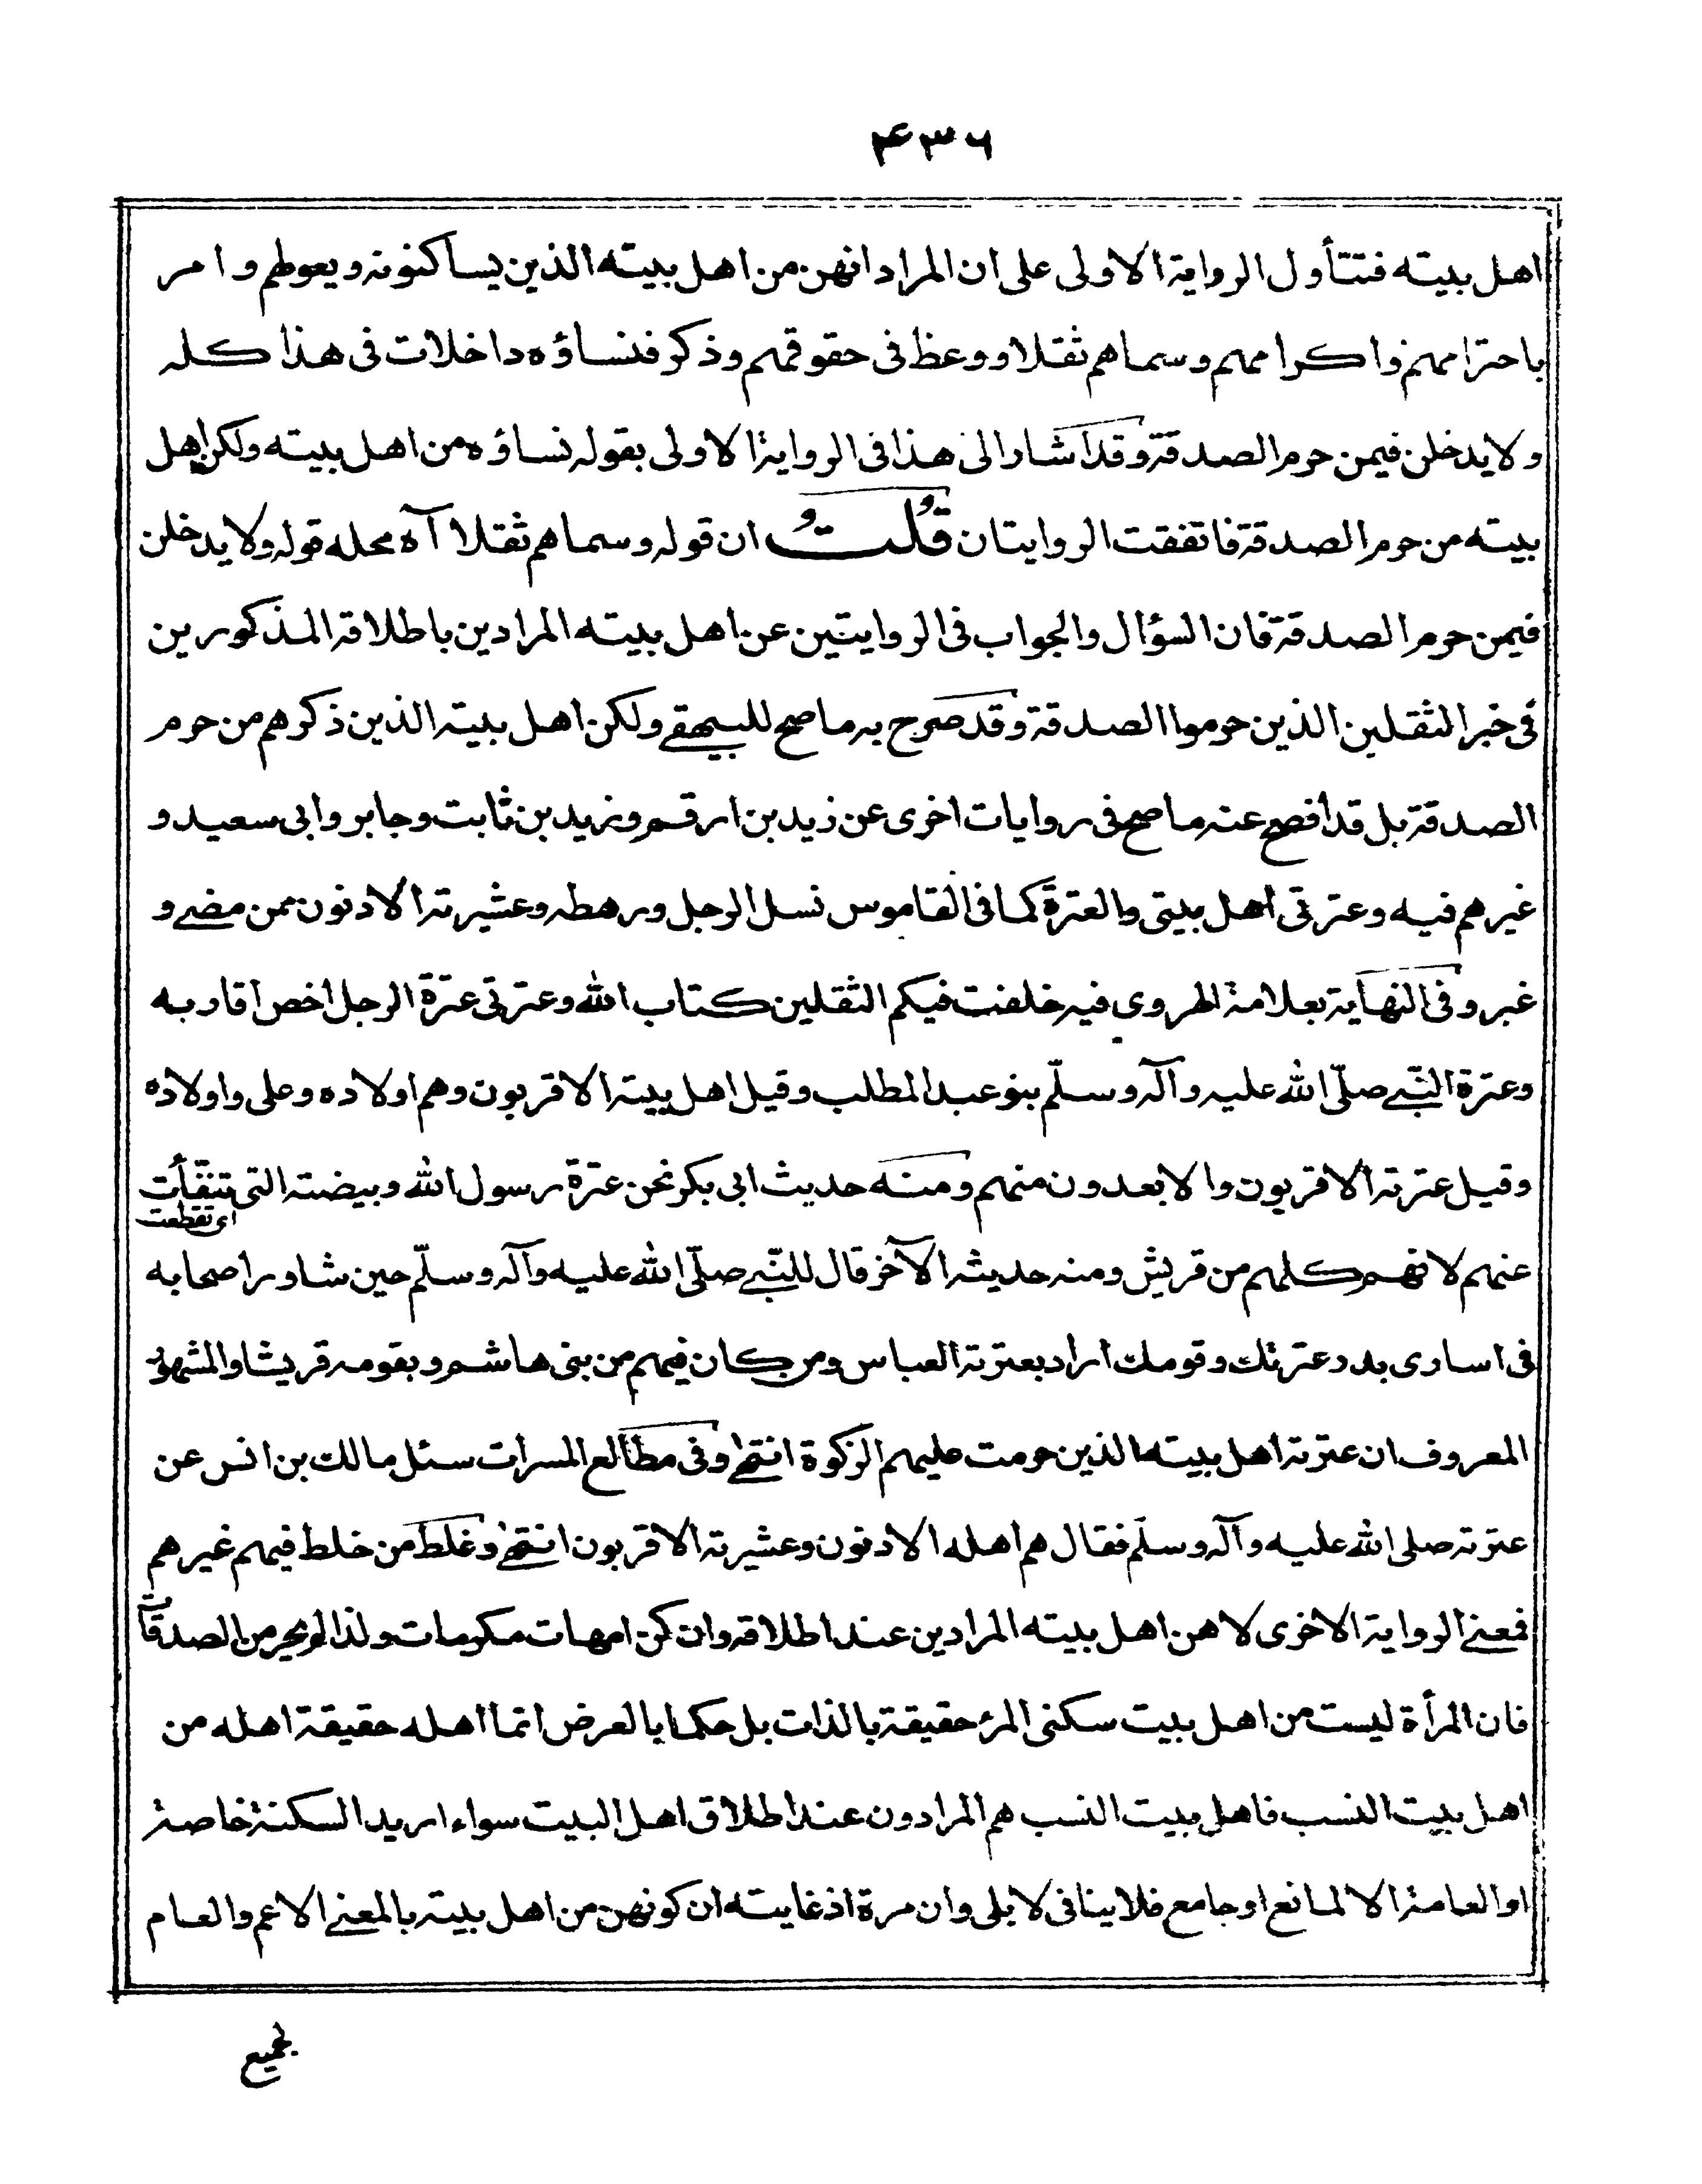 ۴۳۶
اهل بيته فتتأول الرواية الاولى على ان المراد انهن من اهل بيته الذين يساكنونه ويعولهم وامر
باحترامهم واكرامهم وسماهم ثقلا ووعظ فى حقوقهم وذكر فنساؤه داخلات فى هذا كله
ولا يدخلن فيمن حرم الصدقة وقد اشار الى هذا فى الرواية الاولى بقوله نساؤه من اهل بيته ولكن اهل
بيته من حرم الصدقة فاتفقت الروايتان قُلتُ ان قوله وسماهم ثقلا آه محله قوله ولا يدخلن
فيمن حرم الصدقة فان السؤال والجواب فى الروايتين عن اهل بيته المرادين باطلاقه المذكورين
فى خبر الثقلين الذين حرموا الصدقة وقد صرح به ما صح للبيهقے ولكن اهل بيته الذين ذكرهم من حرم
الصدقة بل قد أفصح عنه ما صح فى روايات اخرى عن زيد بن ارقم وزيد بن ثابت وجابر وابى سعيد و
غيرهم فيه وعترتى اهل بيتى والعترة كما فى القاموس نسل الرجل ورهطه وعشيرته الادنون ممن مضے و
غبر وفى النهاية بعلامة الهروي فيه خلفت فيكم الثقلين كتاب الله وعترتى عترة الرجل اخص اقاربه
وعترة النّبے صلّى الله عليه وآله وسلّم بنو عبد المطلب وقيل اهل بيته الاقربون وهم اولاده وعلى واولاده
وقيل عترته الاقربون والابعدون منهم ومنه حديث ابى بكر نحن عترة رسول الله وبيضته التى تنفّأت
اى تقطعت
عنهم لانهم كلهم من قريش ومنه حديثه الآخر قال للنّبے صلّى الله عليه وآله وسلّم حين شاور اصحابه
فى اسارى بدر عترتك وقومك اراد بعترته العباس ومن كان فيهم من بنى هاشم وبقومه قريشا والمشهور
المعروف ان عترته اهل بيته الذين حرمت عليهم الزكوة انتهٰے وفى مطالع المسرات سئل مالك بن انس عن
عترته صلى الله عليه وآله وسلّم فقال هم اهله الادنون وعشيرته الاقربون انتهٰے وغلط من خلط فيهم غيرهم
فمعنے الرواية الاخرى لا هن اهل بيته المرادين عند اطلاقه وان كن امهات مكرمات ولذا لم يحرمن الصدقات
فان المرأة ليست من اهل بيت سكنى المرء حقيقة بالذات بل حكما بالعرض انما اهله حقيقة اهله من
اهل بيت النسب فاهل بيت النسب هم المرادون عند اطلاق اهل البيت سواء اريد السكنة خاصة
او العامة الا لمانع او جامع فلا ينافى لا بلى وان مرة اذ غايته ان كونهن من اهل بيته بالمعنے الاعم والعام
لجميع